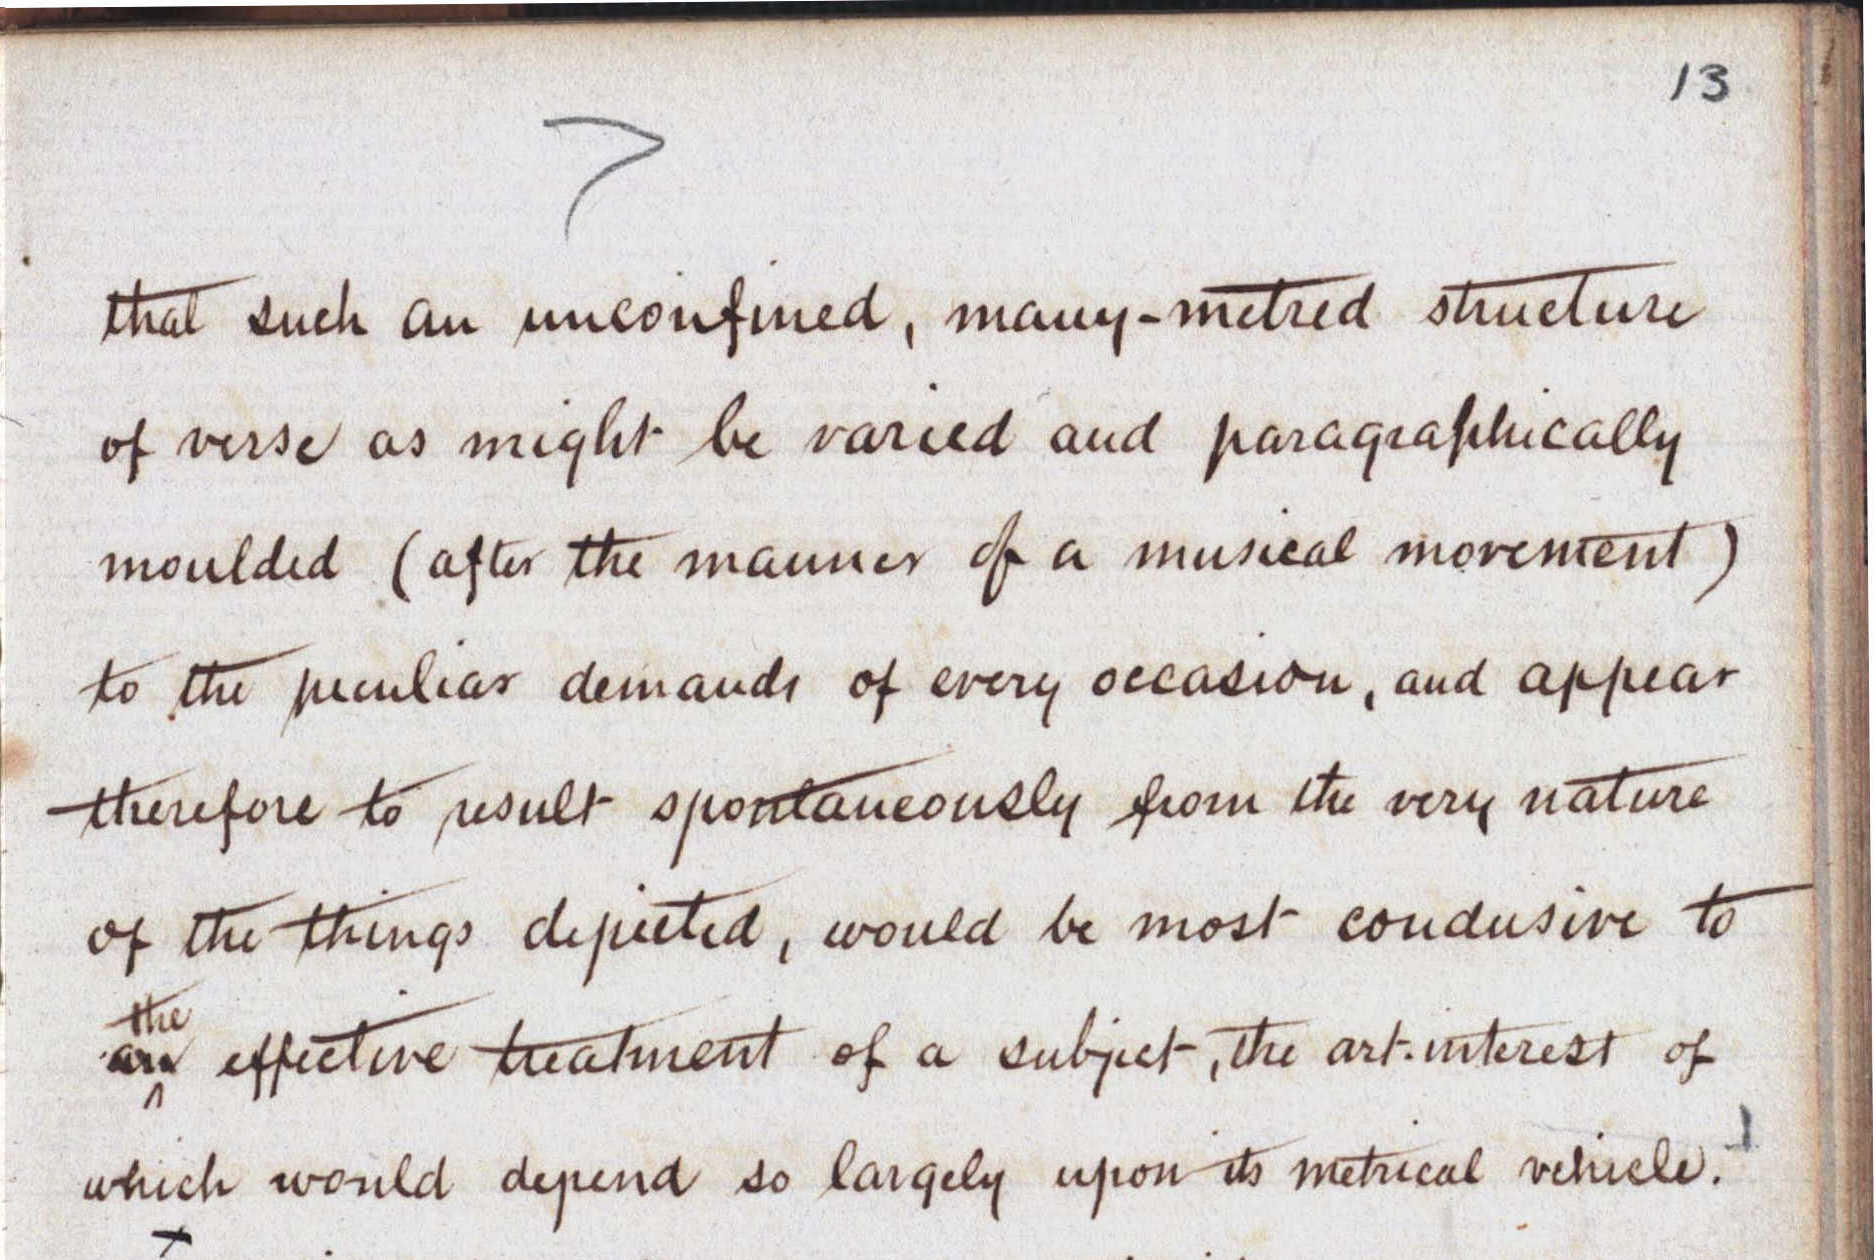 13
7
that such an unconfined, many-metred structure
of verse as might be varied and paragraphically
moulded (after the manner of a musical movement)
to the peculiar demands of every occasion, and appear
therefore to result spontaneously from the very nature
of the things depicted, would be most condusive to
the
an effective treatment of a subject, the art-interest of
which would depend so largely upon its metrical vehicle.